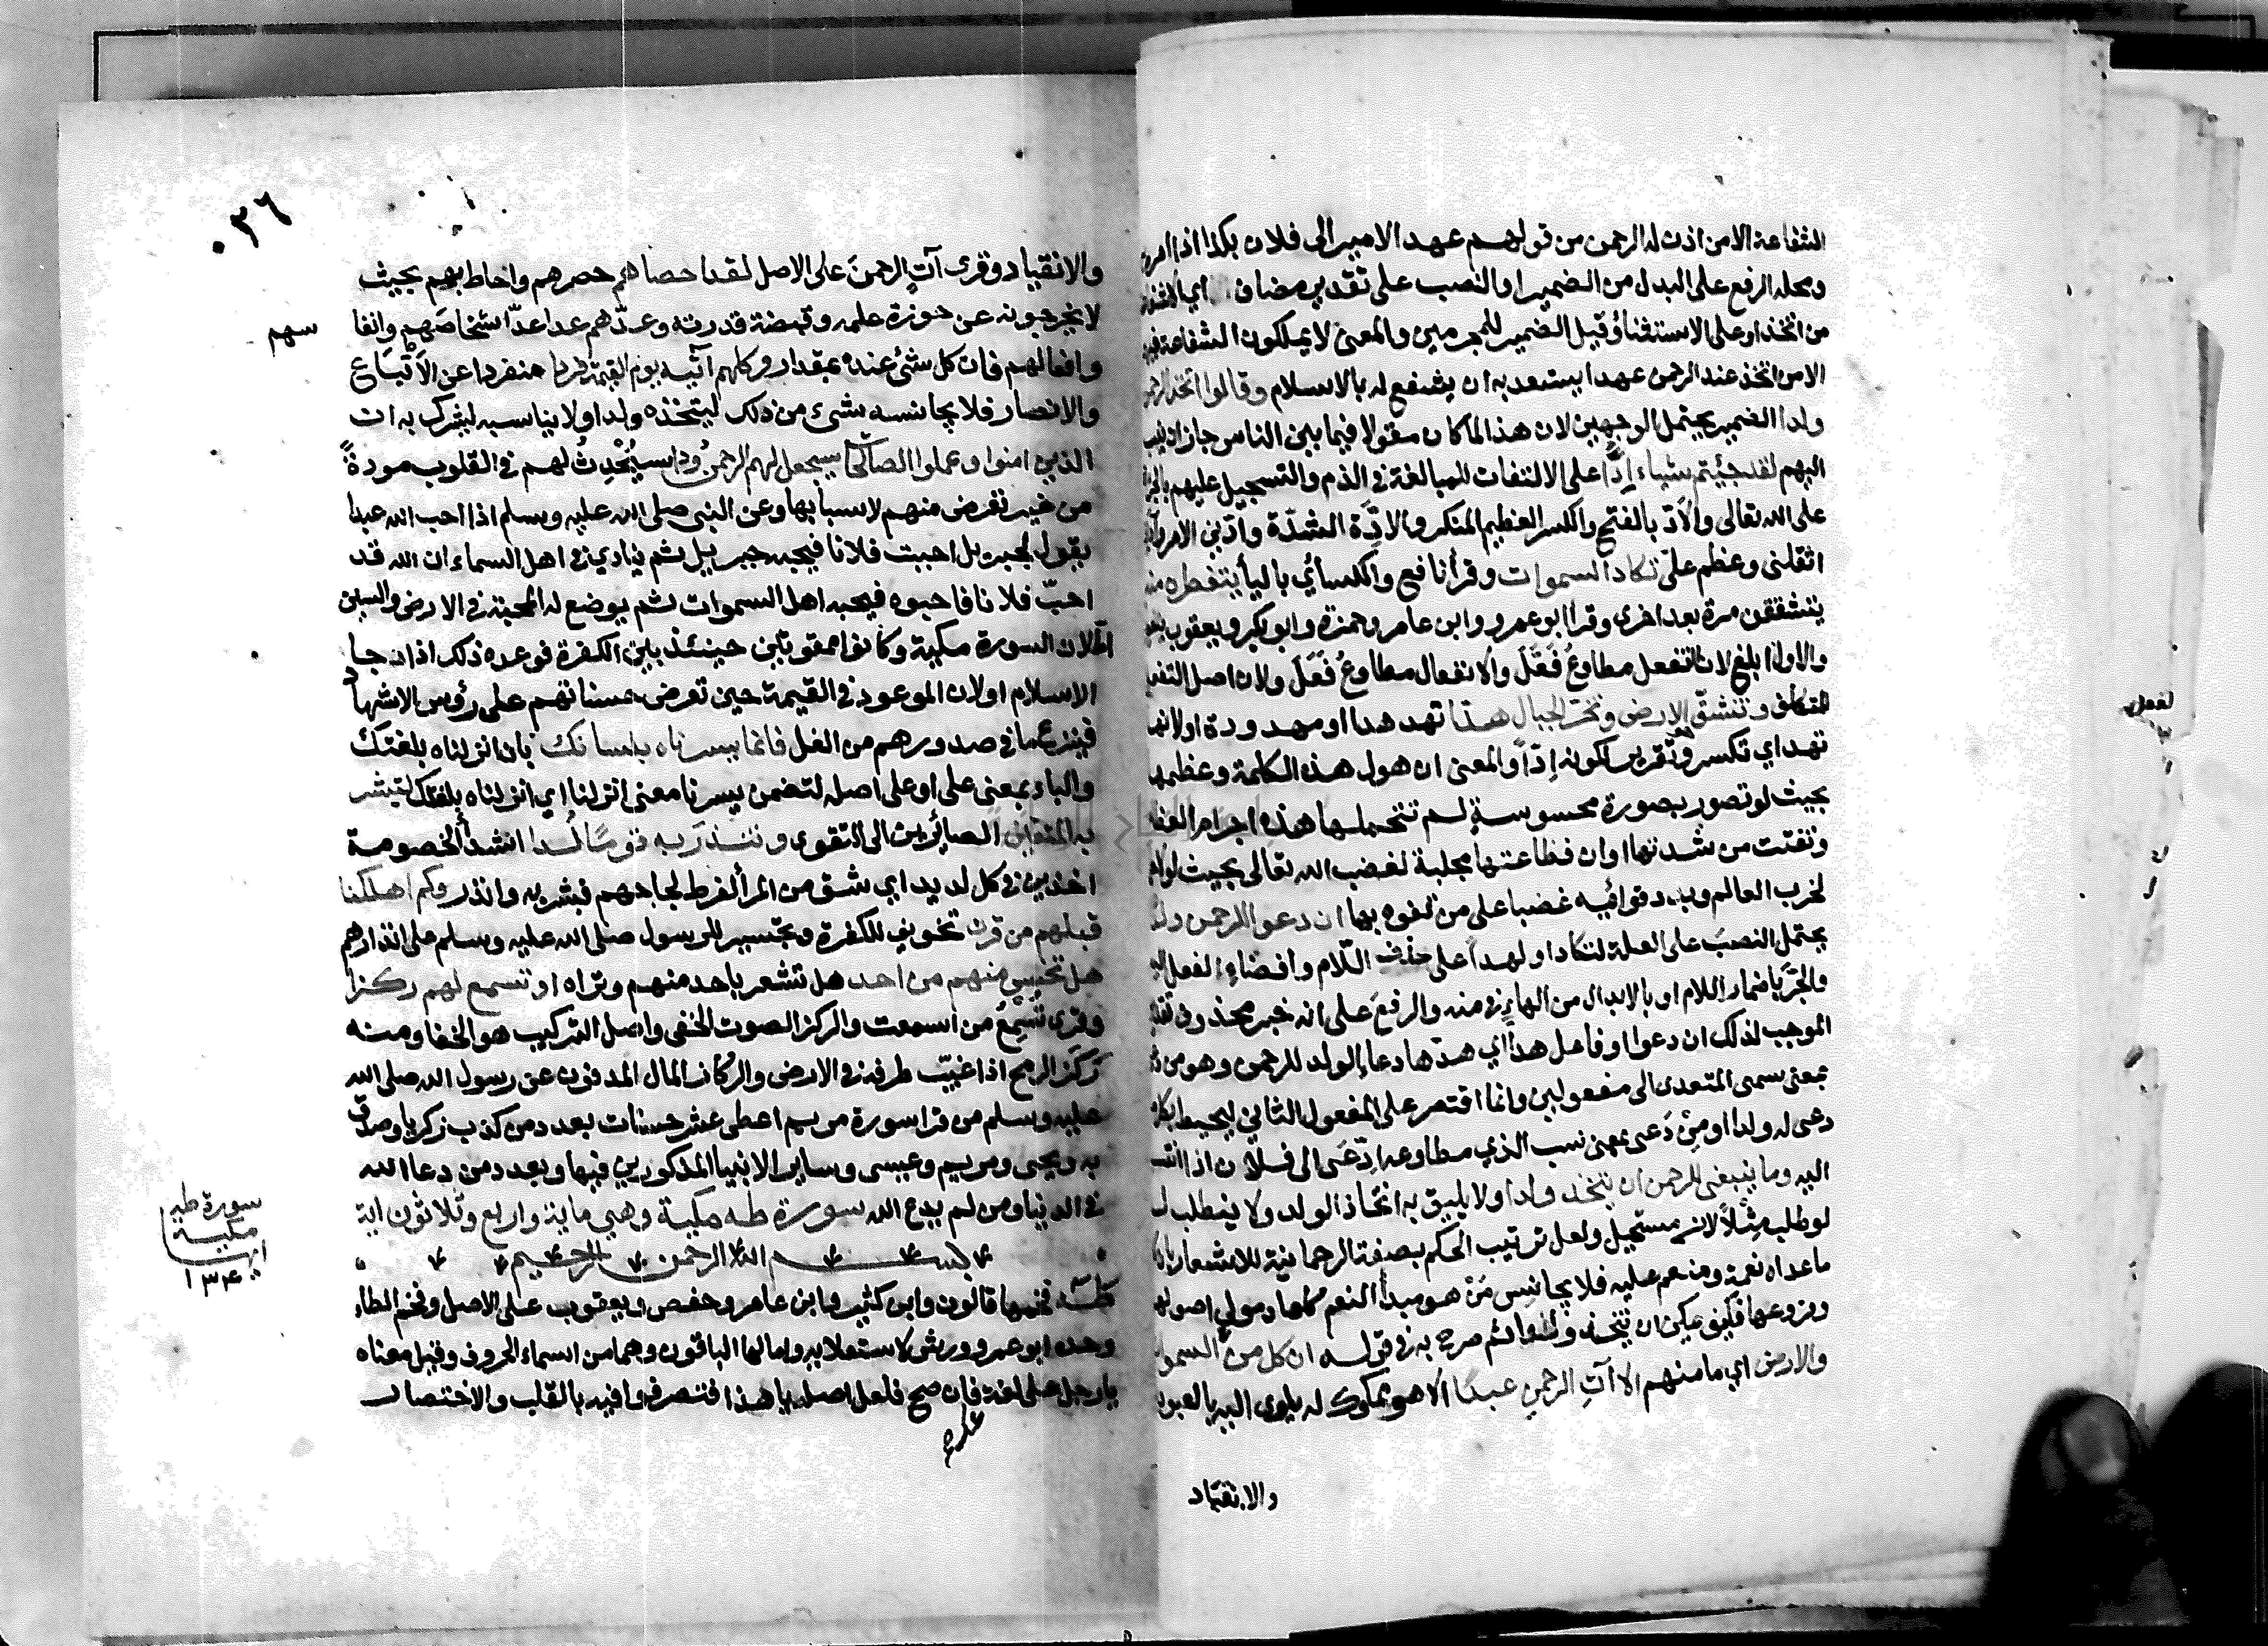 الشفاعة الا من اذن له الرحمن من قولهم عهد الامير الى فلان بكذا اذا امره
ومحله الرفع على البدل من الضمير او النصب على تقدير مضاف اي الا شفاعة
من اتخذ او على الاستثناؤقيل الضمير للمجرمين والمعنى لا يملكون الشفاعة فيهم
الا من اتخذ عند الرحمن عهدا يستعد به ان يشفع له بالاسلام وقالوا اتخذ الرحمن
ولدا الضمير يحتمل الوجهين لان هذا لما كان مقولا فيما بين الناس جاز ان ينسب
اليهم لقد جئتم شياء اِدًّا على الالتفات للمبالغة في الذم والتسجيل عليهم بالجراة
على الله تعالى والاَدّ بالفتح والكسر العظيم المنكر والادّة الشدّة وادّني الامر وآدني
اثقلني وعظم علىّ تكاد السموات وقرأنافع والكسائي باليأ يتفطرن منه
يتشققن مرة بعد اخرى وقرا ابو عمرو وابن عامر وحمزة وابو بكر ويعقوب ينفطرن
والاول ابلغ لان التفعل مطاوعُ فَعَّلَ والانفعال مطاوعُ فَعَلَ ولان اصل التفعل
للتكلف وتنشقّ الارض وتخرّ الجبال هدّا تهد هدا او مهدودة او لانها
تهد اي تكسر وتقرير لكونه اِدّا والمعنى ان هول هذه الكلمة وعظمها
بحيث لو تصور بصورة محسوسةٍ لم تتحملها هذه اجرام العظام
وتفتت من شدتها اوان فظاعتها مجلبة لغضب الله تعالى بحيث لولا
لخرب العالم وبدد قوائمه غضبا على من تفوه بها ان دعوا للرحمن ولدًا
يحتمل النصبَ على العلة لتكاد او لهدا على حذف اللّام وافضاءِ الفعل اليه
والجرَّ باضمار اللام او بالابدال من الهاءِ في منه والرفعَ على انه خبر محذوف تقديره
الموجب لذلك ان دعوا او فاعل هدا اي هدّها دعاءُ الولد للرحمن وهو من دعا
بمعنى سمى المتعدى الى مفعولين وانما اقتصر على المفعول الثاني ليحيط بكل
دعى له ولدا او من دَعى بمعنى نسب الذي مطاوعه اِدّعَى الى فلان اذا انتسب
اليه وما ينبغي للرحمن ان يتخذ ولدا ولا يليق به اتخاذ الولد ولا ينطلب له
لو طلب مثلاً لانه مستحيل ولعل ترتيب الحكم بصفة الرحمانية للاشعار بان
ما عداه نعمة ومنعم عليه فلا يجانِس مَنْ هو مبدأ النعم كلها ومولي اصولها
وفروعها فكيف يمكن ان يتخذه ولدا ثم صرح به في قوله ان كل من السموات
والارض اي ما منهم الا آتِ الرحمن عبدًا الا هو مملوك له ياوى اليه بالعبودية
والانقياد
٠٣٦
والانقياد وقرى آتٍ الرحمنَ على الاصل لقد احصاهم حصرهم واحاط بهم بحيث
لا يخرجونه عن حوزة علمه وقبضة قدرته وعدّهم عدا عدّ اشخاصَهم وانفا
سهم
وافعالهم فان كل شئ عنده بمقدار وكلهم آتيه يوم القيمة فردا منفردا عن الاَتْبَاع
والانصار فلا يجانسه شئ من ذلك ليتخذه ولدا ولا يناسبه ليشرك به ان
الذين امنوا وعملوا الصالحا سيجعل لهم الرحمنُ ودا سيُحْدِثُ لهم في القلوب مودةً
من غير تعرض منهم لاسبابها وعن النبى صلى الله عليه وسلم اذا احب الله عبدا
يقول لجبريل احببت فلانا فيحبه جبريل ثم ينادي في اهل السماء ان الله قد
احبّ فلانا فاحبوه فيحبه اهل السموات ثم يوضع له المحبة في الارض والسين
امّا لان السورة مكية وكانوا ممقوتين حينئذ بين الكفرة فوعده ذلك اذا دجا
الاسلام اولان الموعود في القيمة حين تعرض حسناتهم على رؤس الاشهاد
فينزع ما في صدورهم من الغل فانما يسرناه بلسانك بان انزلناه بلغتك
والباء بمعنى على او على اصله لتضمن يسرنا معنى انزلنا اي انزلناه بلغتك لتبشر
به المتقين الصائرين الى التقوى وتنذر به قومًا لُدا اشدأ الخصومة
اخذين في كل لديد اي شق من المرأ لفرط لجاجهم فبشر به وانذر وكم اهلكنا
قبلهم من قرن تخويف للكفرة وتجسير للرسول صلى الله عليه وسلم على انذارهم
هل تحس منهم من احد هل تشعر باحد منهم وتراه او تسمع لهم ركزا
وقرى تُسْمِعُ من اسمعت والركز الصوت الخفى واصل التركيب هو الخفا ومنه
رَكَزَ الرمح اذا غيّب طرفه في الارض والركاز المال المدفون عن رسول الله صلى الله
عليه وسلم من قرا سورة مريم اعطى عشر حسنات بعدد من كذب زكريا وصدق
به ويحى ومريم وعيسى وساير الانبيا المذكورين فيها وبعدد من دعا الله
في الدنيا ومن لم يدع الله سورة طه مكية وهي ماية واربع وثلاثون اية
سورة طه
مكية
ايتها
١٣٤
بسم الله الرحمن الرحيم
طه فخمها قالون وابن كثير وابن عامر وحفص ويعقوب على الاصل وفخم الطاء
وحده ابو عمرو وورش لاستعلايه وامالها الباقون وهما من اسماء الحروف وقيل معناه
يا رجل على لغة فان صح فلعل اصله يا هذا فتصرفوا فيه بالقلب والاختصار